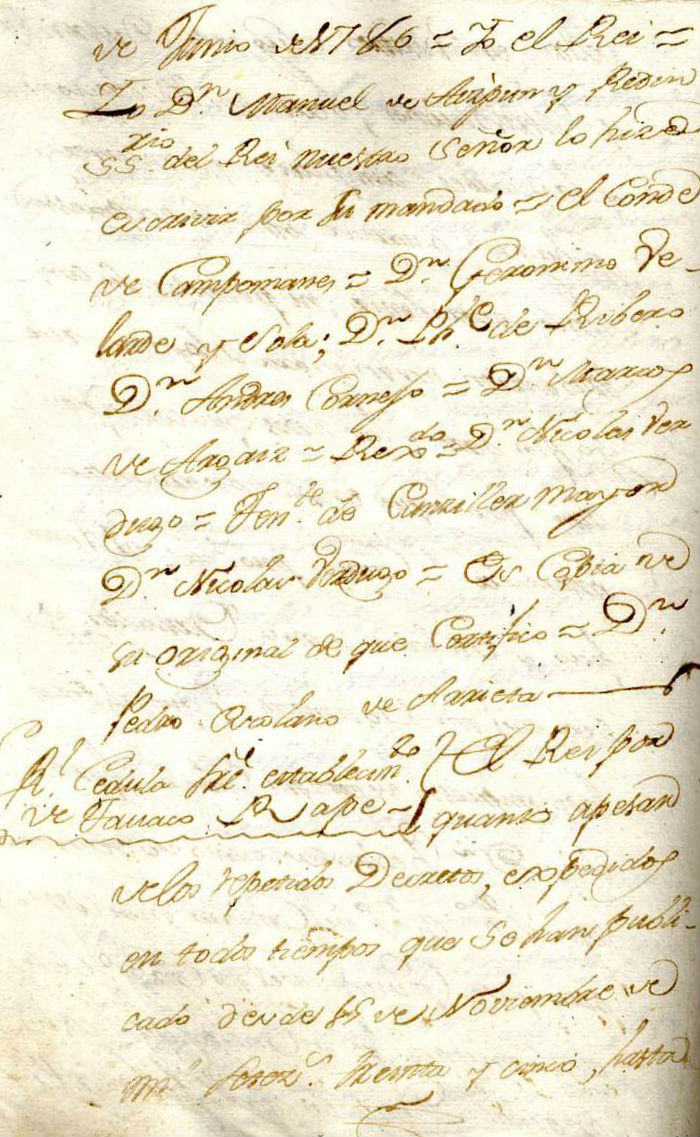 de Junio de 1786 = Yo el Rei =
Yo Dn. Manuel de Aizpun y Redin
SSrio. del Rei nuestro Señor lo hize
escrivir por su mandado = el Conde
de Campomanes = Dn. Geronimo Ve-
larde y Sola; Dn. Phe. de Ribero
Dn. Andres Cornejo = Dn. Marcos
de Argaiz = Rexdo. = Dn. Nicolas Ver
dugo = Tente. de Canziller mayor
Dn. Nicolas Verdugo = Es Copia de
su original de que Certifico = Dn.
Pedro Escolano de Arrieta
Rl. Cedula sre. establecimto.
de Tavaco Rape
El Rei por
quanto apesar
de los repetidos Decretos, expedidos
en todos tiempos que se han publi-
cado desde 15 de Noviembre de
ml. setezs. treinta y cinco, hasta